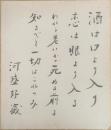 酒は口より入り
恋は眼より入る
われら老いかつ死ぬる前に
知るべき一切はこれのみ
河盛好蔵